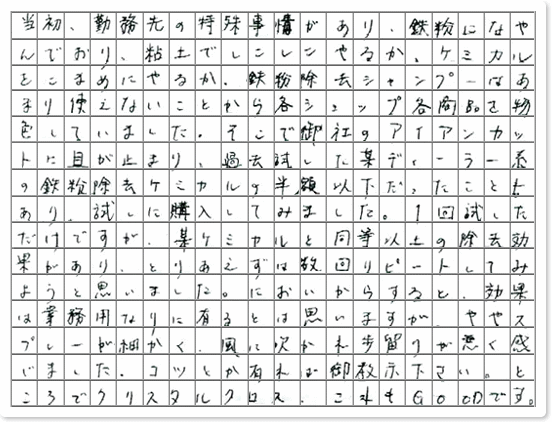 当初、勤務先の特殊事情があり、鉄粉になや
んでおり、粘土でしこしこやるか、ケミカル
をこまめにやるか、鉄粉除去シャンプーはあ
まり使えないことから各ショップ各商品を物
色していました。そこで御社のアイアンカッ
トに目が止まり、過去試した某ディーラー系
の鉄粉除去ケミカルの半額以下だったことも
あり、試しに購入してみました。1回試した
だけですが、某ケミカルと同等以上の除去効
果があり、とりあえずは数回リピートしてみ
ようと思いました。においからすると、効果
は業務用なりに有るとは思いますが、ややス
プレーが細かく、風に吹かれ歩留りが悪く感
じました。コツとか有れば御教示下さい。と
ころでクリスタルクロス、これもGOODです。